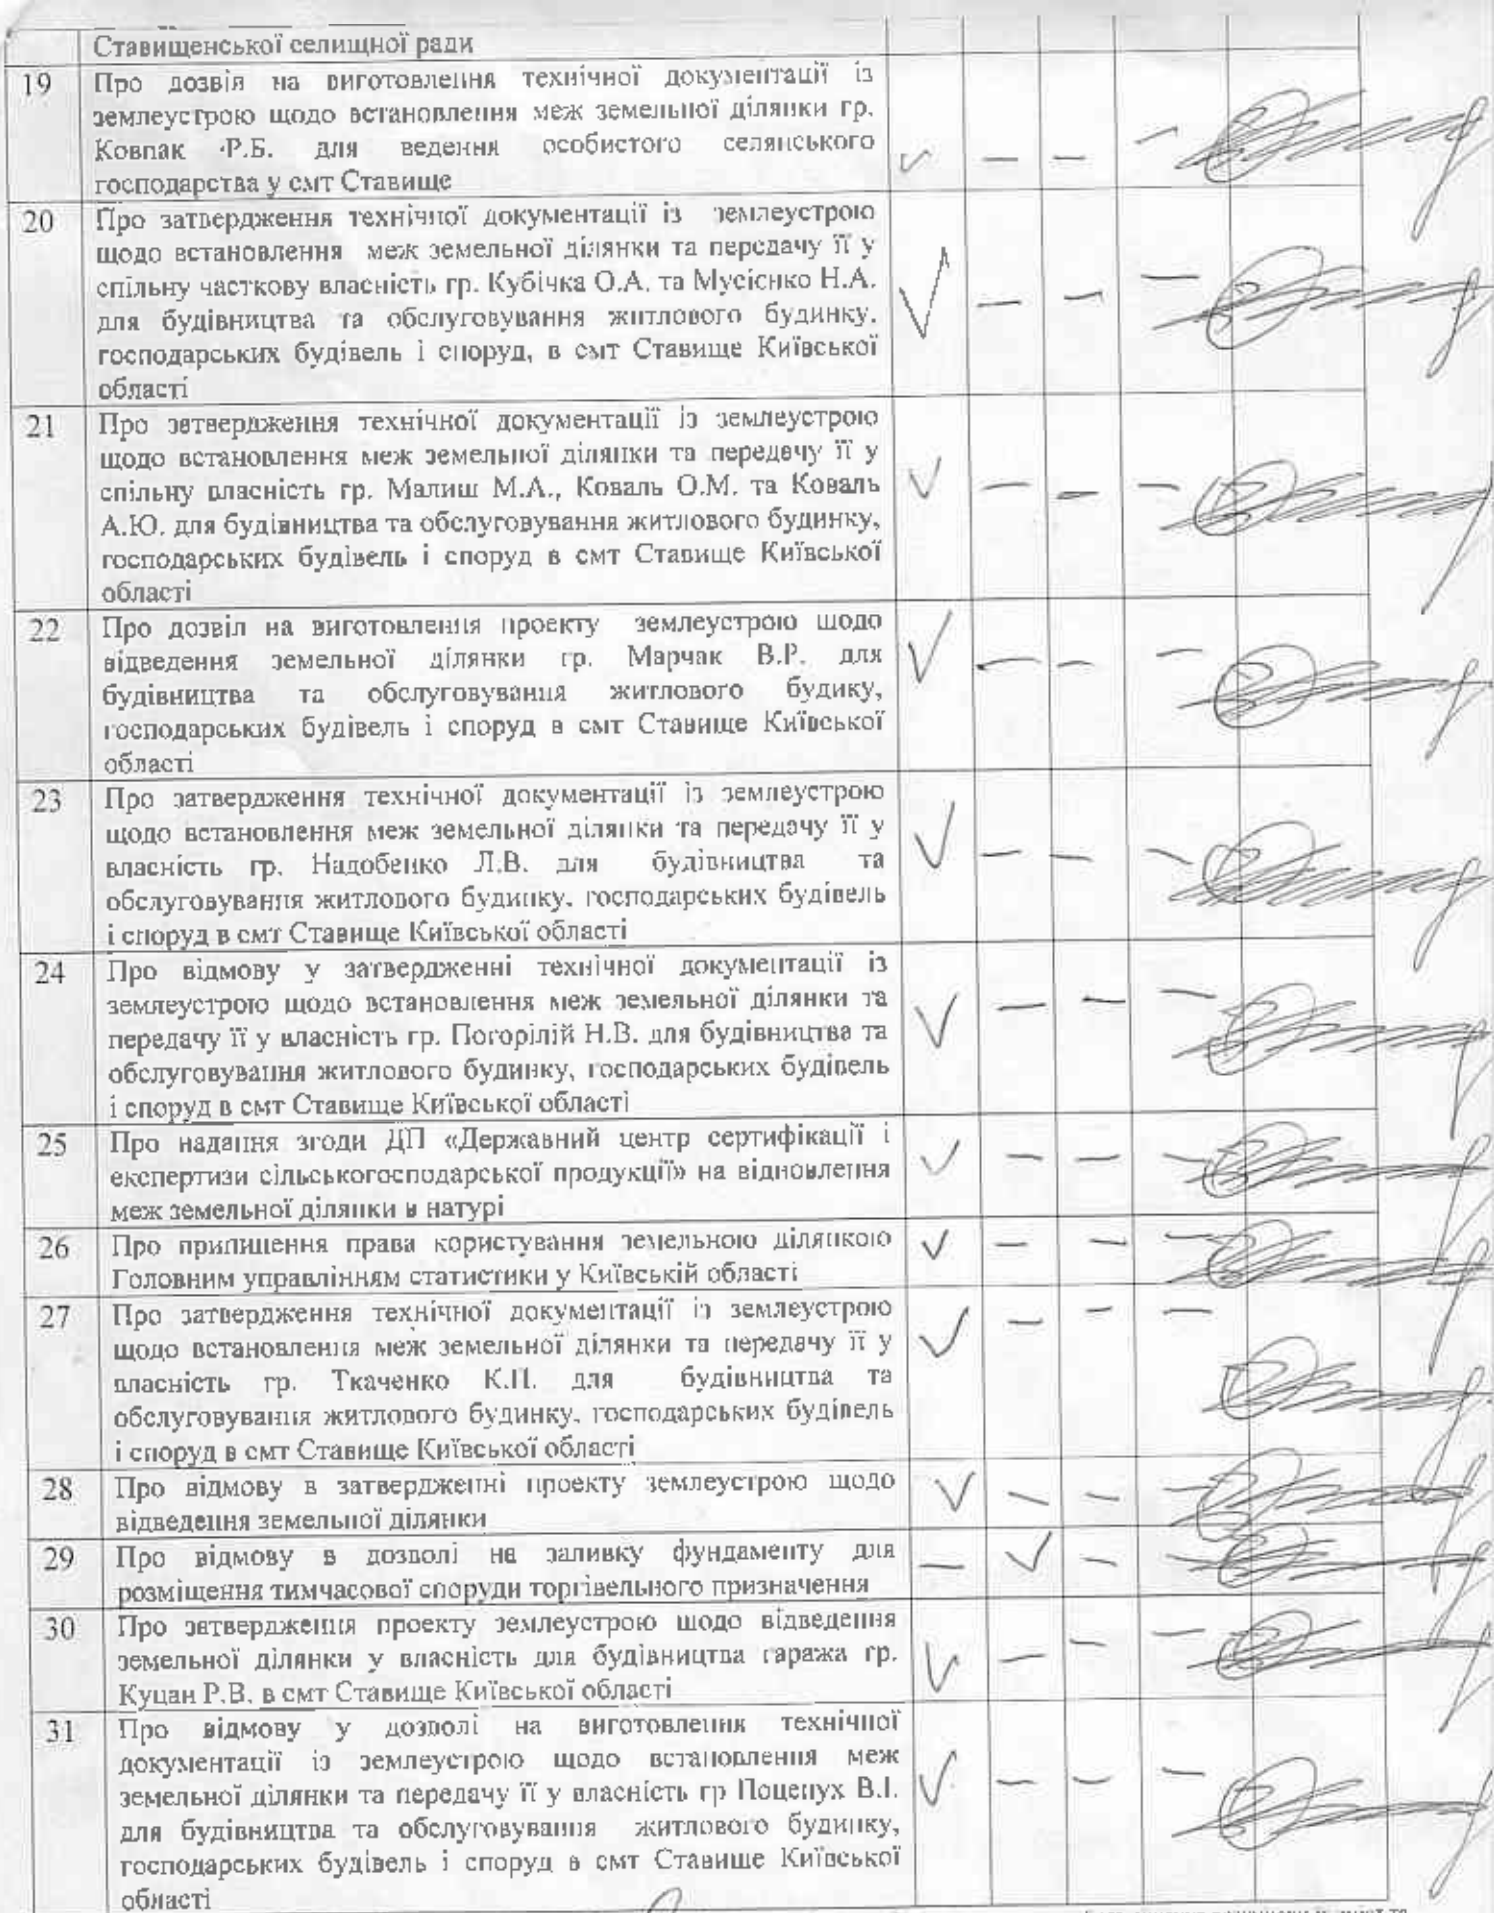 Ставищенської селищної ради
19 Про дозвіл на виготовлення технічної документації із
землеустрою щодо встановлення меж земельної ділянки гр.
Ковпак Р.Б. для ведення особистого селянського
господарства у смт Ставище
20 Про затвердження технічної документації із землеустрою
щодо встановлення меж земельної ділянки та передачу її у
спільну часткову власність гр. Кубічка О.А. та Мусієнко Н.А.
для будівництва та обслуговування житлового будинку,
господарських будівель і споруд, в смт Ставище Київської
області
21 Про затвердження технічної документації із землеустрою
щодо встановлення меж земельної ділянки та передачу її у
спільну власність гр. Малиш М.А., Коваль О.М. та Коваль
А.Ю. для будівництва та обслуговування житлового будинку,
господарських будівель і споруд в смт Ставище Київської
області
22 Про дозвіл на виготовлення проекту землеустрою щодо
відведення земельної ділянки гр. Марчак В.Р. для
будівництва та обслуговування житлового будику,
господарських будівель і споруд в смт Ставище Київської
області
23 Про затвердження технічної документації із землеустрою
щодо встановлення меж земельної ділянки та передачу її у
власність гр. Надобенко Л.В. для будівництва та
обслуговування житлового будинку, господарських будівель
і споруд в смт Ставище Київської області
24 Про відмову у затвердженні технічної документації із
землеустрою щодо встановлення меж земельної ділянки та
передачу її у власність гр. Погорілій Н.В. для будівництва та
обслуговування житлового будинку, господарських будівель
і споруд в смт Ставище Київської області
25 Про надання згоди ДП «Державний центр сертифікації і
експертизи сільськогосподарської продукції» на відновлення
меж земельної ділянки в натурі
26 Про припинення права користування земельною ділянкою
Головним управлінням статистики у Київській області
27 Про затвердження технічної документації із землеустрою
щодо встановлення меж земельної ділянки та передачу її у
власність гр. Ткаченко К.П. для будівництва та
обслуговування житлового будинку, господарських будівель
і споруд в смт Ставище Київської області
28 Про відмову в затвердженні проекту землеустрою щодо
відведення земельної ділянки
29 Про відмову в дозволі на заливку фундаменту для
розміщення тимчасової споруди торгівельного призначення
30 Про затвердження проекту землеустрою щодо відведення
земельної ділянки у власність для будівництва гаража гр.
Куцан Р.В. в смт Ставище Київської області
31 Про відмову у дозволі на виготовлення технічної
документації із землеустрою щодо встановлення меж
земельної ділянки та передачу її у власність гр Поцепух В.І.
для будівництва та обслуговування житлового будинку,
господарських будівель і споруд в смт Ставище Київської
області